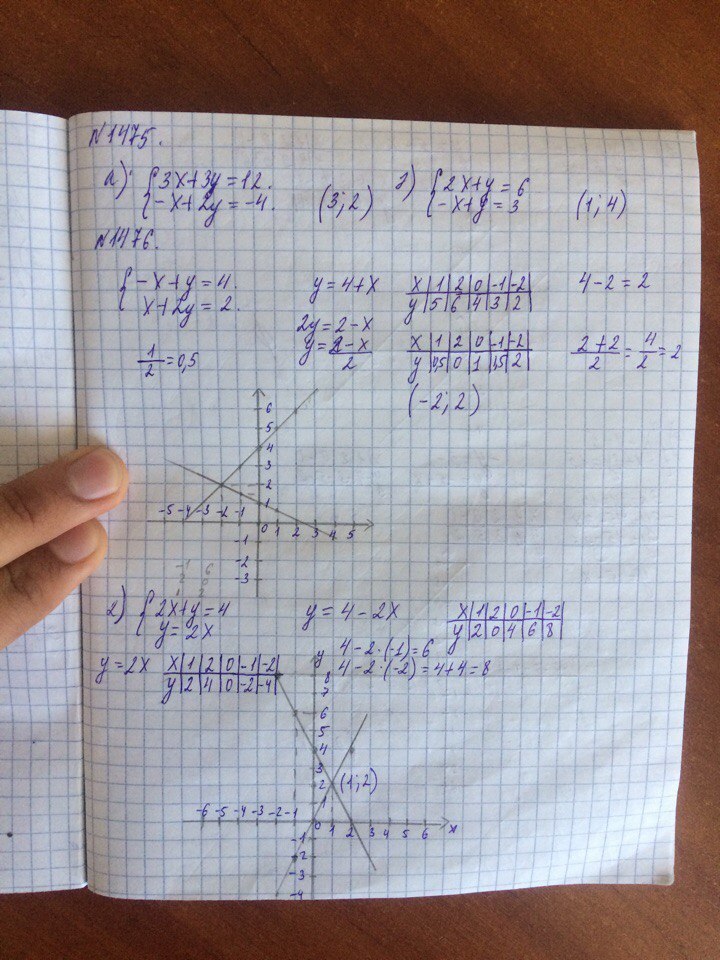 N1475.
а) { 3x+3y=12. (3; 2) г) { 2x+y=6 (1; 4)
-x+2y=-4. -x+y=3
N1476.
{ -x+y=4. y=4+x x|1|2|0|-1|-2 4-2=2
x+2y=2. y|5|6|4|3|2
2y=2-x
1/2=0,5 y=2-x/2 x|1|2|0|-1|-2 2+2/2=4/2=2
y|0,5|0|1|1,5|2
(-2; 2)
6
5
4
3
2
1
-5 -4 -3 -2 -1 0 1 2 3 4 5
-1
-2
-3
2) { 2x+y=4 y=4-2x x|1|2|0|-1|-2
y=2x y|2|0|4|6|8
4-2·(-1)=6
y=2x x|1|2|0|-1|-2 4-2·(-2)=4+4=8
y|2|4|0|-2|-4
y
8
7
6
5
4
3
2 (1; 2)
1
-6 -5 -4 -3 -2 -1 0 1 2 3 4 5 6 x
-1
-2
-3
-4